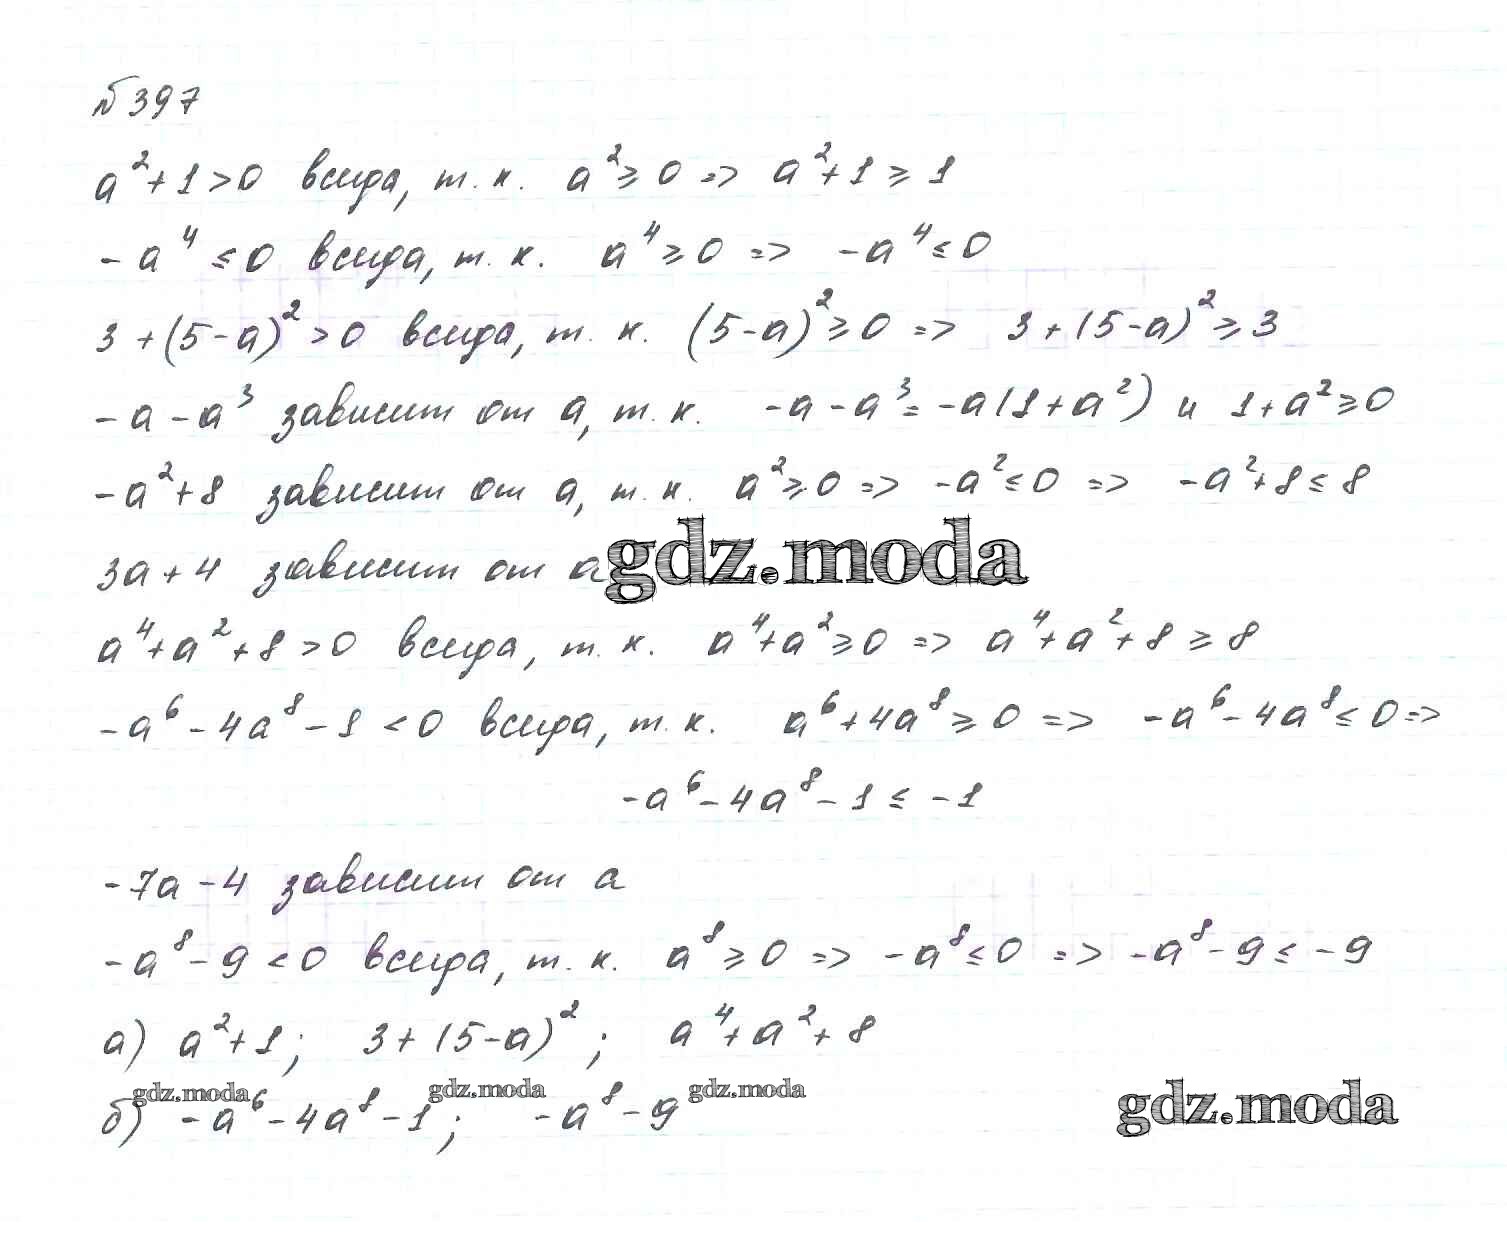 №397
a²+1>0 всегда, т. к. a²≥0 => a²+1≥1
-a⁴≤0 всегда, т. к. a⁴≥0 => -a⁴≤0
3+(5-a)²>0 всегда, т. к. (5-a)²≥0 => 3+(5-a)²≥3
-a-a³ зависит от a, т. к. -a-a³=-a(1+a²) и 1+a²≥0
-a²+8 зависит от a, т. к. a²≥0 => -a²≤0 => -a²+8≤8
3a+4 зависит от a
gdz.moda
a⁴+a²+8>0 всегда, т. к. a⁴+a²≥0 => a⁴+a²+8≥8
-a⁶-4a⁸-1<0 всегда, т. к. a⁶+4a⁸≥0 => -a⁶-4a⁸≤0 =>
-a⁶-4a⁸-1≤-1
-7a-4 зависит от a
-a⁸-9<0 всегда, т. к. a⁸≥0 => -a⁸≤0 => -a⁸-9≤-9
а) a²+1; 3+(5-a)²; a⁴+a²+8
gdz.moda gdz.moda gdz.moda
б) -a⁶-4a⁸-1; -a⁸-9
gdz.moda